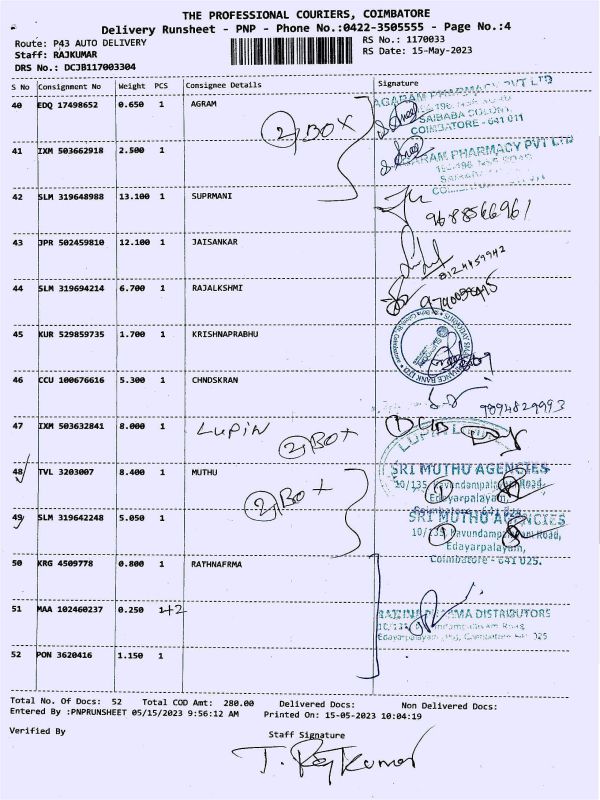 THE PROFESSIONAL COURIERS, COIMBATORE
Delivery Runsheet - PNP - Phone No.:0422-3505555 - Page No.:4
Route: P43 AUTO DELIVERY
RS No.: 1170033
Staff: RAJKUMAR
RS Date: 15-May-2023
DRS No.: DCJB117003304
S No Consignment No Weight PCS Consignee Details Signature
40 EDQ 17498652 0.650 1 AGRAM
AGARAM PHARMACY PVT LTD
SAIBABA COLONY
COIMBATORE - 641 011
2 BOX
41 IXM 503662918 2.500 1
PHARMACY PVT LTD
42 SLM 319648988 13.100 1 SUPRMANI
9688566961
43 JPR 502459810 12.100 1 JAISANKAR
44 SLM 319694214 6.700 1 RAJALKSHMI
45 KUR 529859735 1.700 1 KRISHNAPRABHU
46 CCU 100676616 5.300 1 CHNDSKRAN
9894829993
47 IXM 503632841 8.000 1 LUPIN
2 BOX
LUPIN
48 TVL 3203007 8.400 1 MUTHU
SRI MUTHU AGENCIES
10/135, Kavundampalayam Road,
Edayarpalayam,
2 BOX
49 SLM 319642248 5.050 1
SRI MUTHU AGENCIES
10/135, Kavundampalayam Road,
Edayarpalayam,
Coimbatore - 641 025.
50 KRG 4509778 0.800 1 RATHNAFRMA
51 MAA 102460237 0.250 1+2
DISTRIBUTORS
52 PON 3620416 1.150 1
Total No. Of Docs: 52 Total COD Amt: 280.00 Delivered Docs: Non Delivered Docs:
Entered By :PNPRUNSHEET 05/15/2023 9:56:12 AM Printed On: 15-05-2023 10:04:19
Verified By
Staff Signature
T. Rajkumar